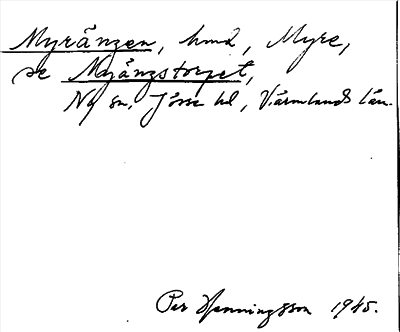 Myrängen, hmd, Myre,
se Myängstorpet,
Ny sn. Jösse hd, Värmlands län.
Per Henningsson 1945.